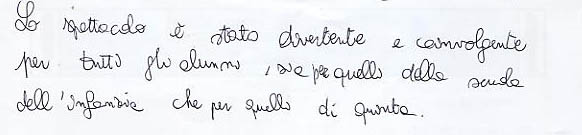 Lo spettacolo è stato divertente e coinvolgente
per tutti gli alunni, sia per quelli della scuola
dell'infanzia che per quelli di quinta.